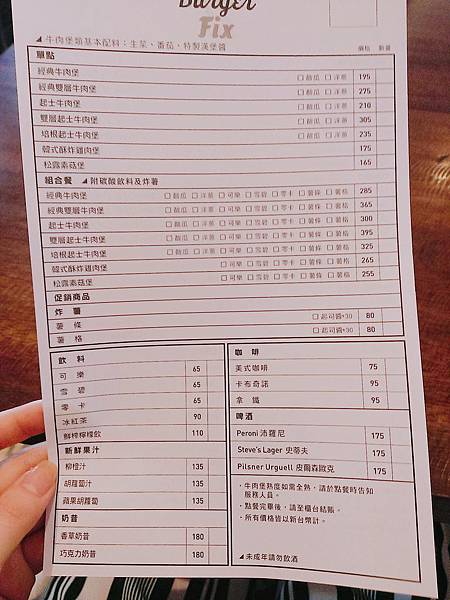 Burger
Fix
◢ 牛肉堡類基本配料：生菜、番茄、特製漢堡醬
單點 價格 數量
經典牛肉堡 □ 酸瓜 □ 洋蔥 195
經典雙層牛肉堡 □ 酸瓜 □ 洋蔥 275
起士牛肉堡 □ 酸瓜 □ 洋蔥 210
雙層起士牛肉堡 □ 酸瓜 □ 洋蔥 305
培根起士牛肉堡 □ 酸瓜 □ 洋蔥 235
韓式酥炸雞肉堡 175
松露素菇堡 165
組合餐 ◢ 附碳酸飲料及炸薯
經典牛肉堡 □ 酸瓜 □ 洋蔥 □ 可樂 □ 雪碧 □ 零卡 □ 薯條 □ 薯格 285
經典雙層牛肉堡 □ 酸瓜 □ 洋蔥 □ 可樂 □ 雪碧 □ 零卡 □ 薯條 □ 薯格 365
起士牛肉堡 □ 酸瓜 □ 洋蔥 □ 可樂 □ 雪碧 □ 零卡 □ 薯條 □ 薯格 300
雙層起士牛肉堡 □ 酸瓜 □ 洋蔥 □ 可樂 □ 雪碧 □ 零卡 □ 薯條 □ 薯格 395
培根起士牛肉堡 □ 酸瓜 □ 洋蔥 □ 可樂 □ 雪碧 □ 零卡 □ 薯條 □ 薯格 325
韓式酥炸雞肉堡 □ 可樂 □ 雪碧 □ 零卡 □ 薯條 □ 薯格 265
松露素菇堡 □ 可樂 □ 雪碧 □ 零卡 □ 薯條 □ 薯格 255
促銷商品
炸薯
薯條 □ 起司醬+30 80
薯格 □ 起司醬+30 80
飲料
可樂 65
雪碧 65
零卡 65
冰紅茶 90
鮮榨檸檬飲 110
新鮮果汁
柳橙汁 135
胡蘿蔔汁 135
蘋果胡蘿蔔 135
奶昔
香草奶昔 180
巧克力奶昔 180
咖啡
美式咖啡 75
卡布奇諾 95
拿鐵 95
啤酒
Peroni 沛羅尼 175
Steve's Lager 史蒂夫 175
Pilsner Urguell 皮爾森歐克 175
・牛肉堡熟度如需全熟，請於點餐時告知
服務人員。
・點餐完畢後，請至櫃台結賬。
・所有價格皆以新台幣計。
◢ 未成年請勿飲酒